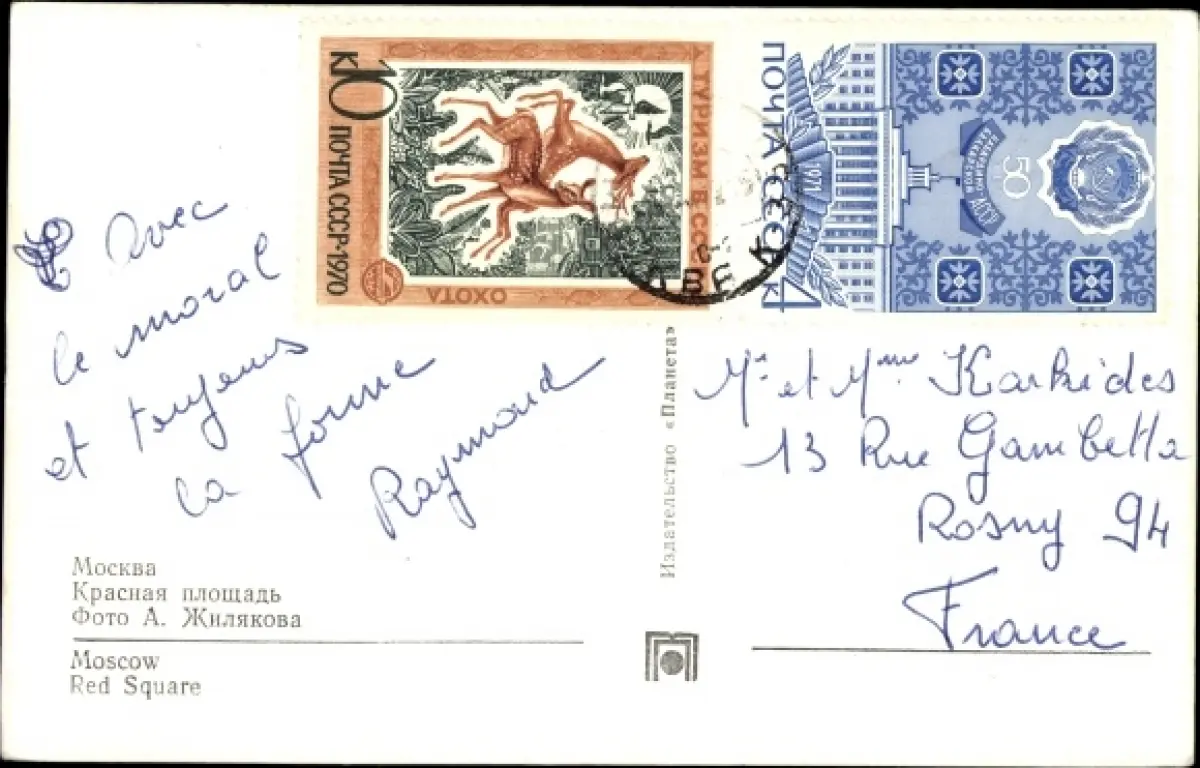 10
К
ПОЧТА СССР·1970
ТУРИЗМ В СССР
ОХОТА
ПОЧТА СССР
4К
1971
50
КАБАРДИНО-
БАЛКАРСКОЙ
АССР
Avec
le moral
et toujours
la forme
Raymond
Mr et Mme Karkides
13 Rue Gambetta
Rosny 94
France
Издательство «Планета»
Москва
Красная площадь
Фото А. Жилякова
Moscow
Red Square